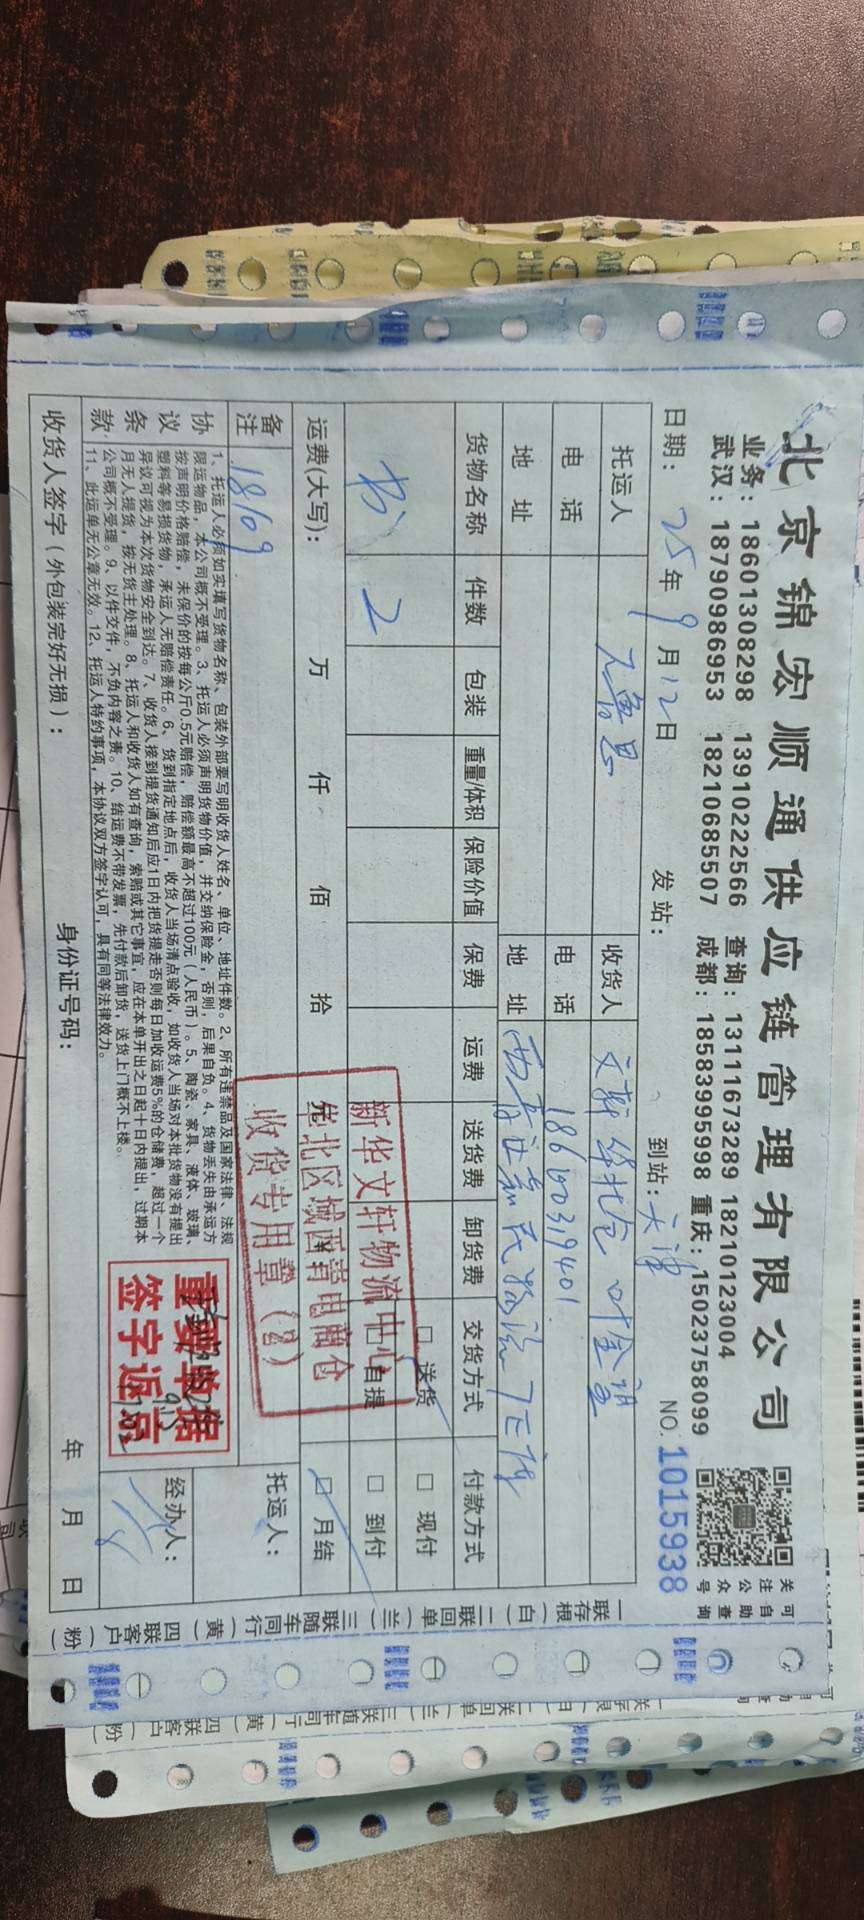 北京锦宏顺通供应链管理有限公司
业务：18601308298 13910222566 查询：13111673289 18210123004
武汉：18790986953 18210685507 成都：18583995998 重庆：15023758099
可自助查询
关注公众号
日期：25年9月12日 发站： 到站：天津 NO.1015938
托运人 收货人 文轩华北仓 叶金
电话 电话 18600319401
地址 地址
货物名称 件数 包装 重量体积 保险价值 保费 运费 送货费 卸货费 交货方式 付款方式
书 2 □送货 □自提 □现付 □到付 □月结
运费(大写)： 万 仟 佰 拾 元
备注 18109
托运人：
新华文轩物流中心
华北区域西青电商仓
收货专用章（2）
协议条款
1、托运人必须如实填写货物名称、包装外部要写明收货人姓名、单位、地址件数。2、所有违禁品及国家法律、法规
限运物品，本公司概不受理。3、托运人必须声明货物价值，并交纳保险金，否则，后果自负。4、货物丢失由承运方
按声明价格赔偿，未保价的按每公斤0.5元赔偿，赔偿额最高不超过100元（人民币）。5、陶瓷、家具、液体、玻璃、
塑料等易损货物，承运人无赔偿责任。6、货到指定地点后，收货人当场清点验收，如收货人当场对本批货物没有提出
异议可视为本次货物安全到达。7、收货人接到提货通知后应1日内把货提走否则每日加收运费5%的仓储费，超过一个
月无人提货，按无货主处理。8、托运人和收货人如有查询，索赔或其它事宜，应在本单开出之日起十日内提出，过期本
公司概不受理。9、以件交件，不负内容之责。10、结运费不带发票，先付款后卸货，送货上门概不上楼。
11、此运单无公章无效。12、托运人特约事项，本协议双方签字认可，具有同等法律效力。
重要单据
签字返京
经办人：
收货人签字（外包装完好无损）： 身份证号码： 年 月 日
一联存根（白）二联回单（兰）三联随车同行（黄）四联客户（粉）